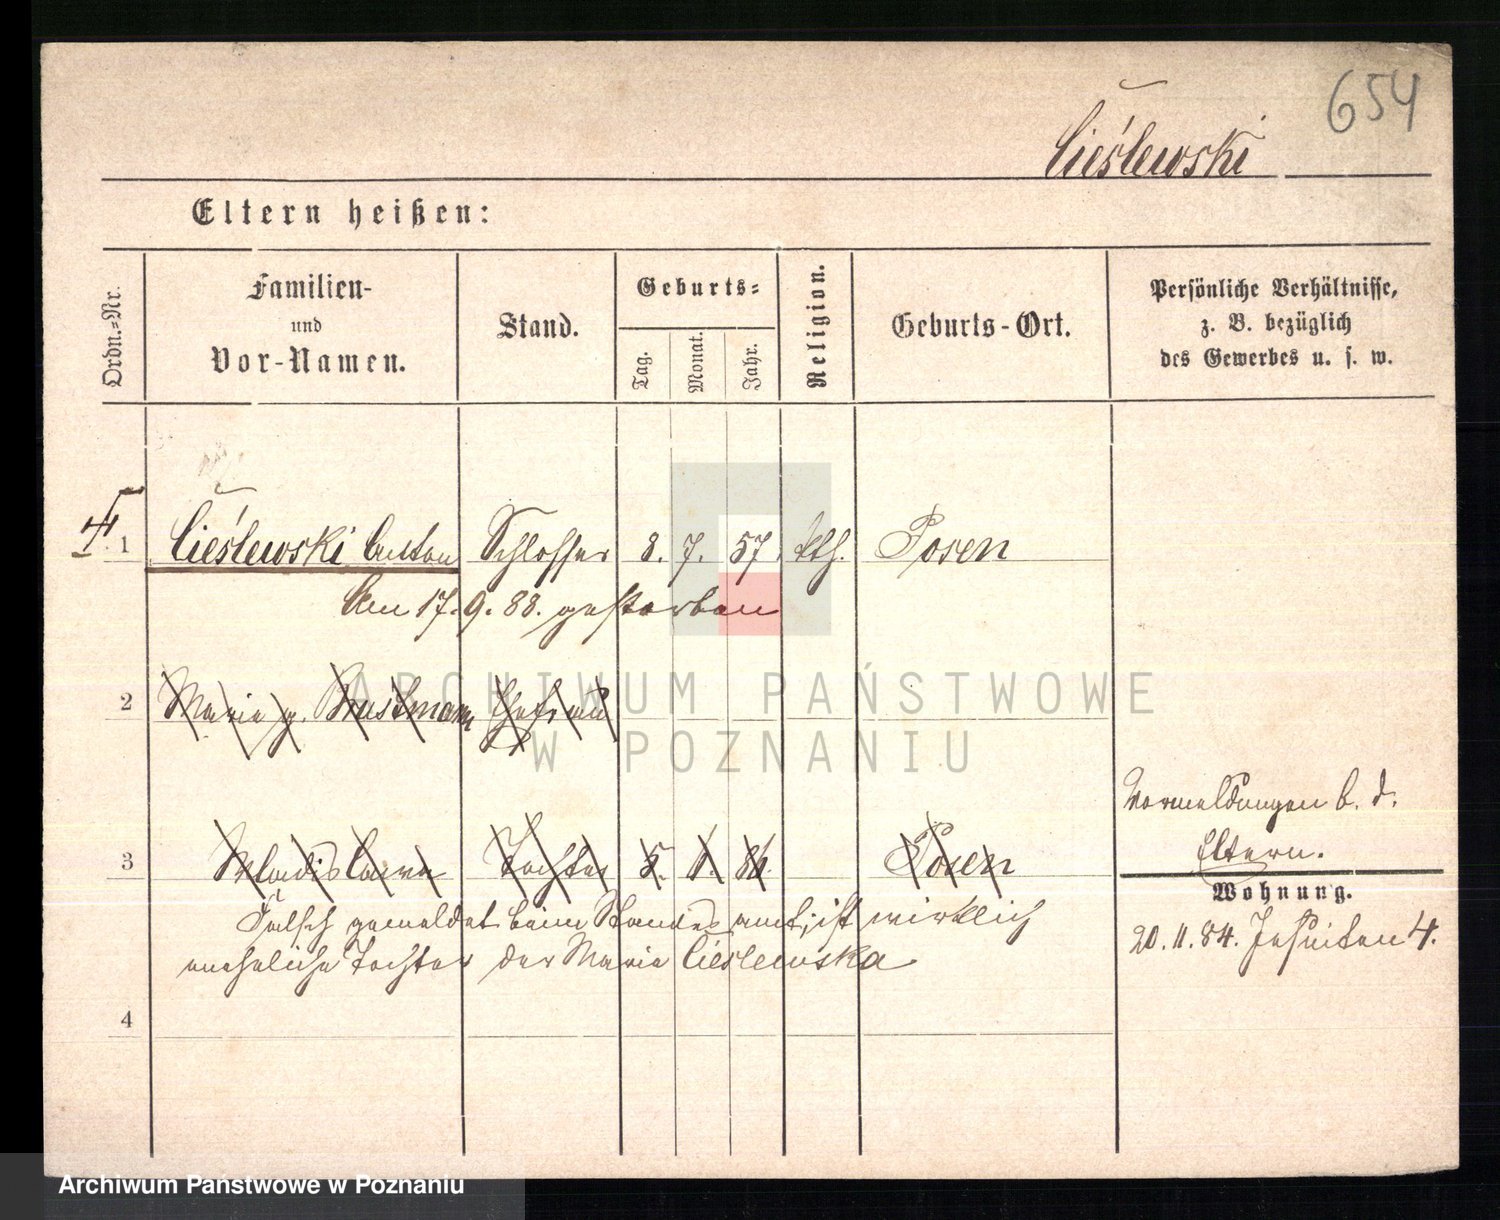 654
Cieślewski
Eltern heißen:
Ordn.=Nr.
Familien-
und
Vor-Namen.
Stand.
Geburts=
Tag.
Monat.
Jahr.
Religion.
Geburts-Ort.
Persönliche Verhältnisse,
z. B. bezüglich
des Gewerbes u. s. w.
1 Cieślewski Anton Schlosser 8. 7. 57. kth. Posen
Am 17. 9. 88. gestorben
2 Maria g. Brustmann Ehefrau
ARCHIWUM PAŃSTWOWE
W POZNANIU
Vormeldungen b. d.
Eltern.
3 Wladisława Tochter 5. 1. 86. Posen
Wohnung.
Falsch gemeldet beim Standesamt, ist wirklich
20. 11. 84. Jesuiten 4.
uneheliche Tochter der Maria Cieslewska
4
Archiwum Państwowe w Poznaniu